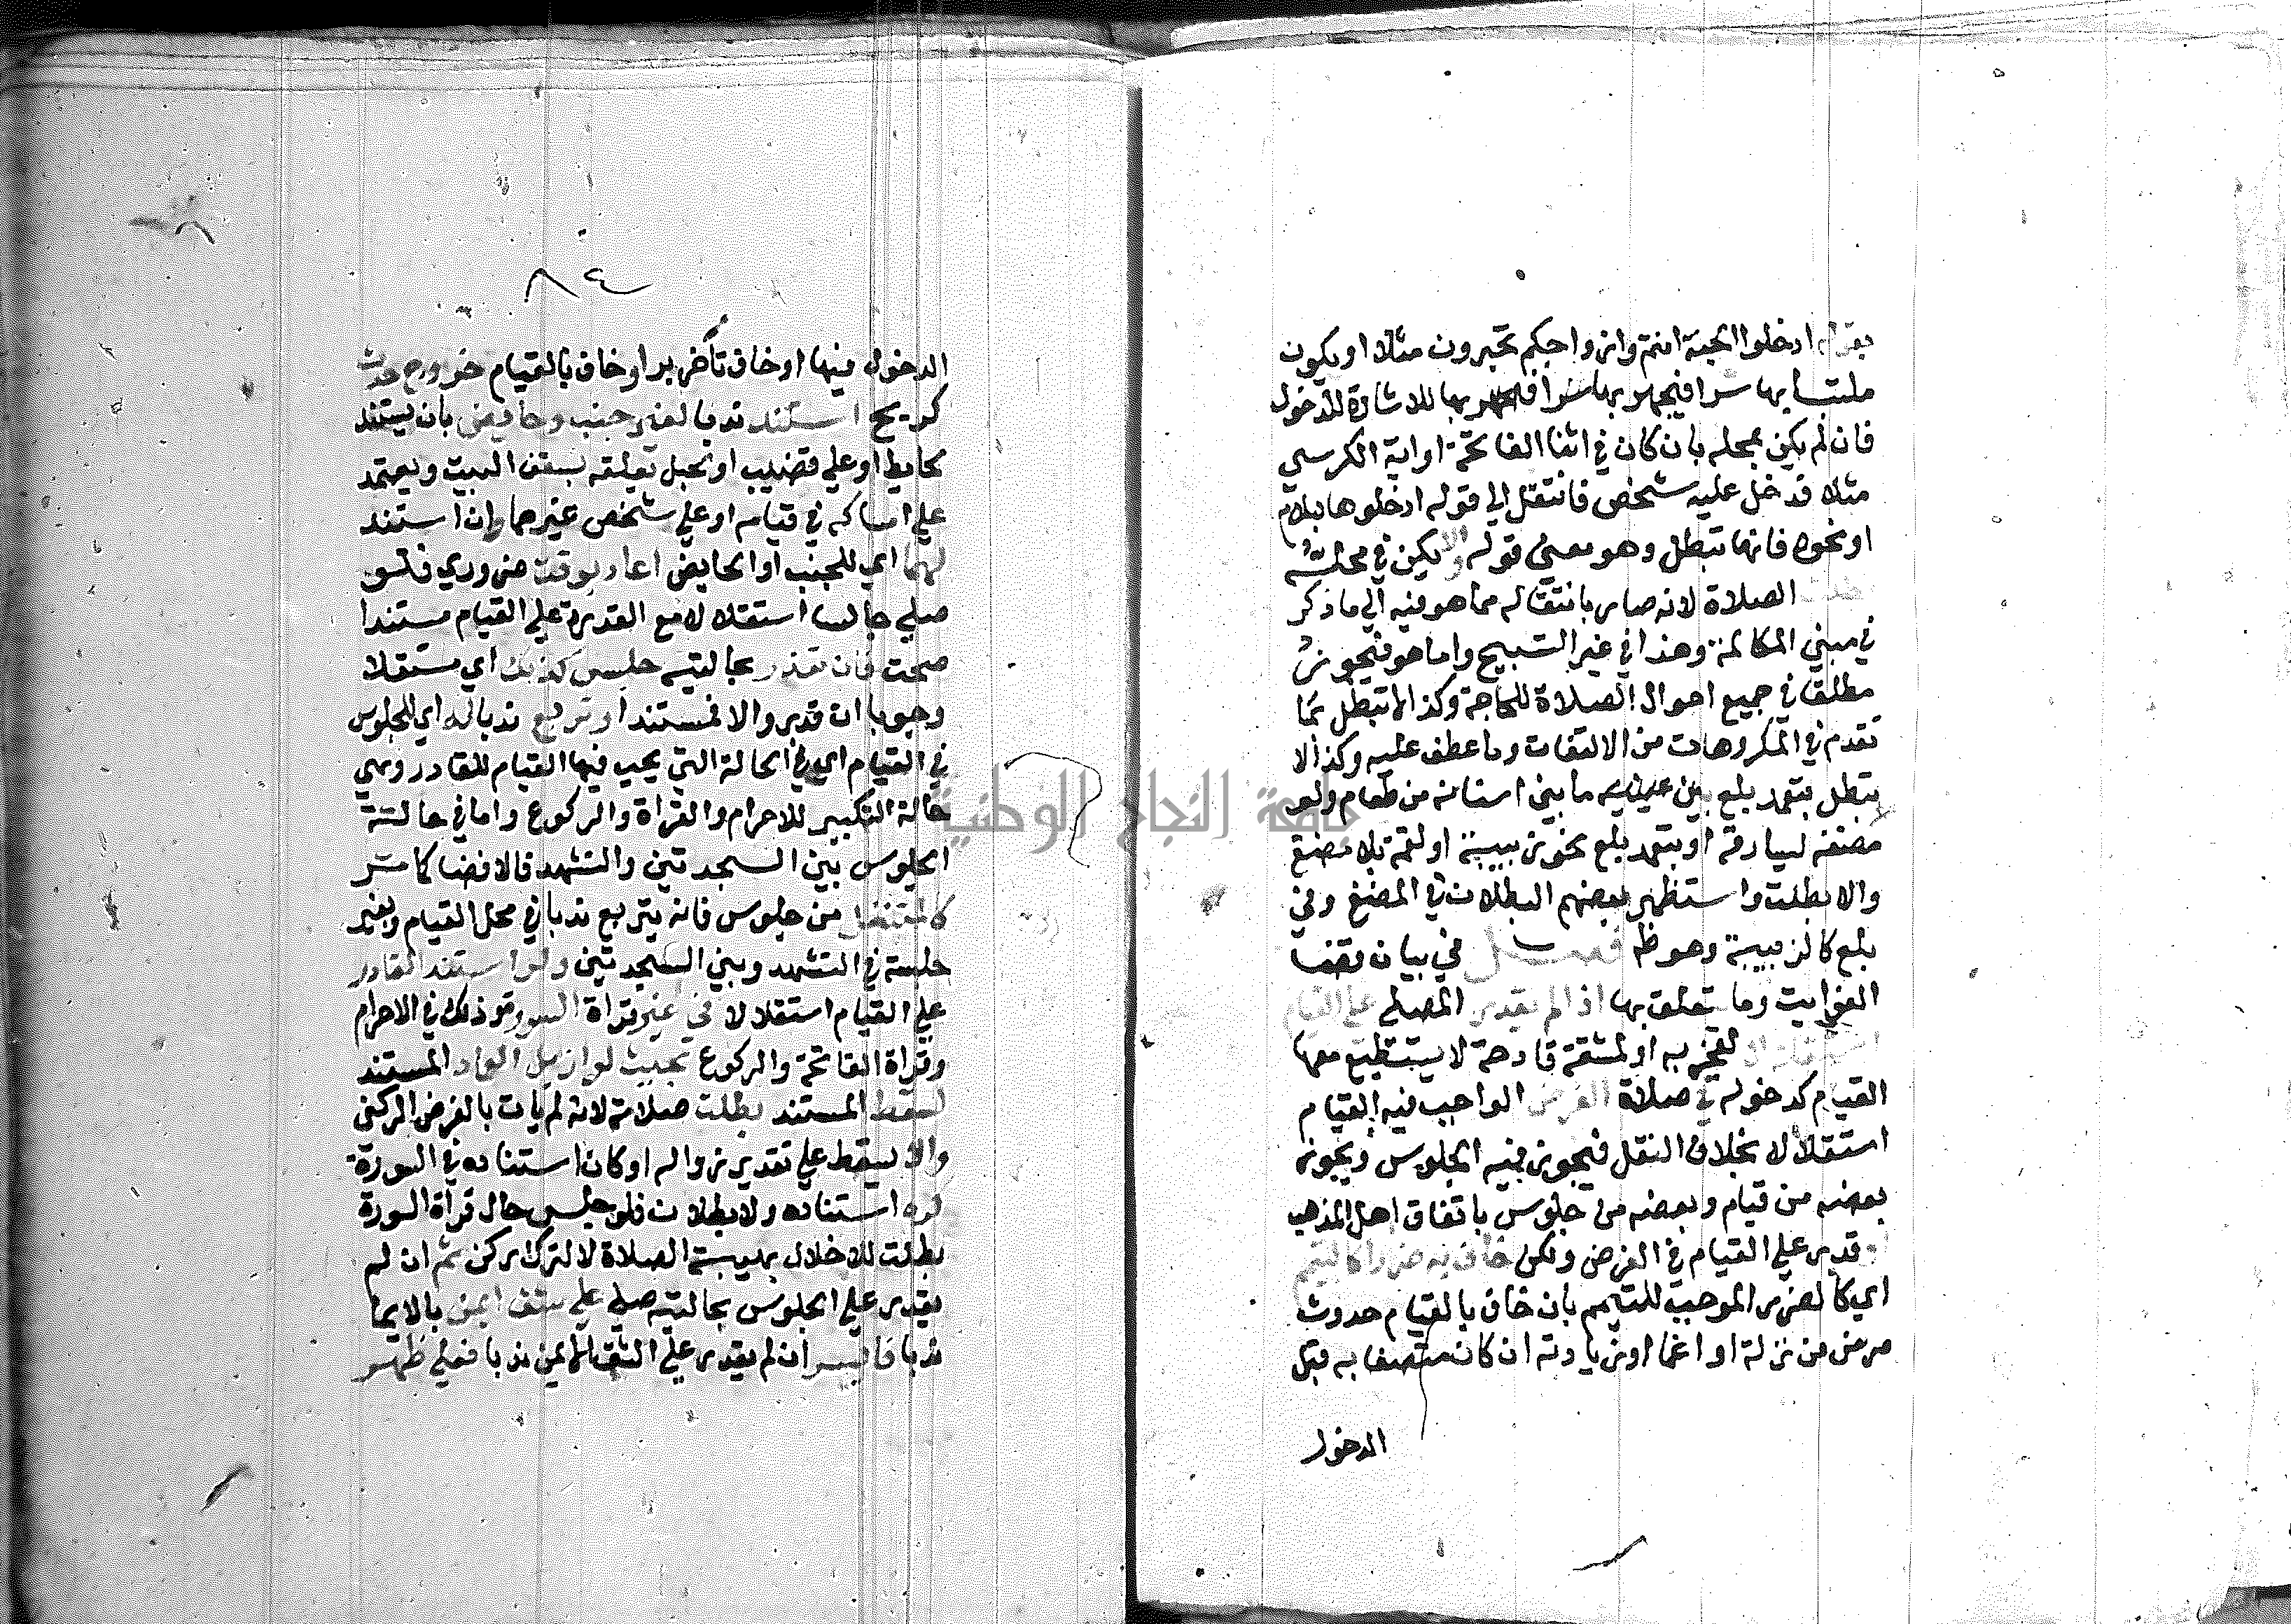 بقراة ادخلوا الجنة انتم وازواجكم تحبرون مثلا او يكون
ملتبسا بها سرا فيجهر بها للاشارة للدخول
فان لم يكن بمحله بان كان في اثنا الفاتحة او اية الكرسي
مثلا فدخل عليه شخص فانتقل الي قوله ادخلوها بسلام
او نحوه فانها تبطل وهو معني قوله والا يكن في محله
بطلت الصلاة لانه صار بانتقاله مما هو فيه الي ما ذكر
في معني المكالمة وهذا في غير التسبيح واما هو فيجوز
مطلقا في جميع احوال الصلاة للحاجة وكذا لا تبطل بما
تقدم في المكروهات من الالتفات وما عطف عليه وكذا لا
تبطل بتعمد بلع ما بين اسنانه من طعام ولو
مضغه ليسارقه او بتعمد بلع نحو زبيبة او لقمة بلا مضغ
والا بطلت واستظهر بعضهم البطلان في المضغ وفي
بلع كالزبيبة وهو ظ فصل في بيان قضا
الفوايت وما يتعلق بها اذا لم يقدر المصلي علي القيام
استقلالا لعجز به او لمشقة فادحة لا يستطيع معها
القيام كدخوله في صلاة الفرض الواجب فيه القيام
استقلالا لا بخلاف النفل فيجوز فيه الجلوس ويجوز
بعضه من قيام وبعضه من جلوس باتفاق اهل المذهب
او قدر علي القيام في الفرض ولكن خاف به ضررا كالتيمم
اي كالضرر الموجب للتيمم بان خاف بالقيام حدوث
مرض من نزلة او اغما او زيادته ان كان متصفا به قبل
الدخول
٨٤
الدخول فيها او خاف تاخر برء او خاف بالقيام خروج حدث
كريح استند ندبا لغير جنب وحايض بان يستند
لحايط او علي قضيب او لحبل تعلقه بسقف البيت ويعتمد
علي امساكه في قيامه او علي شخص غيرهما وان استند
لهما اي للجنب او الحايض اعاد بوقت ضروري
صلي جالسا استقلالا مع القدرة علي القيام مستندا
صحت فان تعذر بحالتيه جلس كذلك اي مستقلا
وجوبا ان قدر والا فمستندا وتربع ندبا له اي للجلوس
في القيام اي في الحالة التي يجب فيها القيام للقادر وهي
حالة التكبير للاحرام والقراة والركوع واما في حالة
الجلوس بين السجدتين والتشهد فالافضا كما مر
كالمتنفل من جلوس فانه يتربع ندبا في محل القيام ويغير
جلسته في التشهد وبين السجدتين ولو استند القادر
علي القيام استقلالا في غير قراة السورة وذلك في الاحرام
وقراة الفاتحة والركوع بحيث لو ازيل العماد المستند
لسقط المستند بطلت صلاته لانه لم يات بالفرض الركني
والا يسقط علي تقدير زواله او كان استناده في السورة
كره استناده ولا بطلان فلو جلس حال قراة السورة
بطلت للاخلال بهيبة الصلاة لا لترك ركن ثم ان لم
يقدر علي الجلوس بحالتيه صلي علي شق ايمن بالايما
ندبا فايسر ان لم يقدر علي الشق الايمن ندبا فعلي ظهر
جامعة النجاح الوطنية